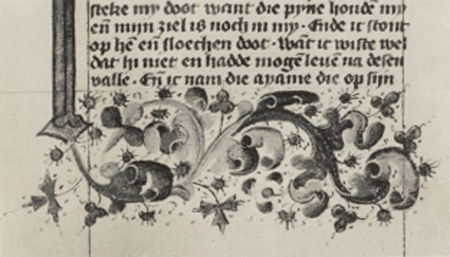 steke my doot want die pyne houdē my
eñ mijn ziel is noch in my · Ende ic stont
op hē eñ sloechen doot · Wāt ic wiste wel
dat hi niet en hadde mogē levē na desen
valle · Eñ ic nam die dyame die op sijn